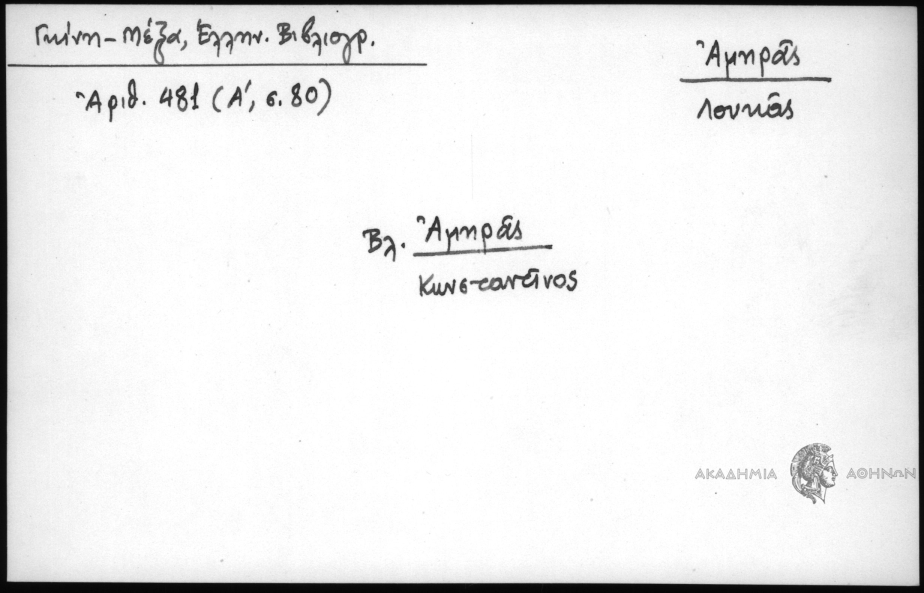 Γκίνη - Μέξα, Ἑλλην. Βιβλιογρ.
Ἀριθ. 481 (Α΄, σ. 80)
Ἀμηρᾶς
Λουκᾶς
Βλ. Ἀμηρᾶς
Κωνσταντῖνος
ΑΚΑΔΗΜΙΑ ΑΘΗΝΩΝ